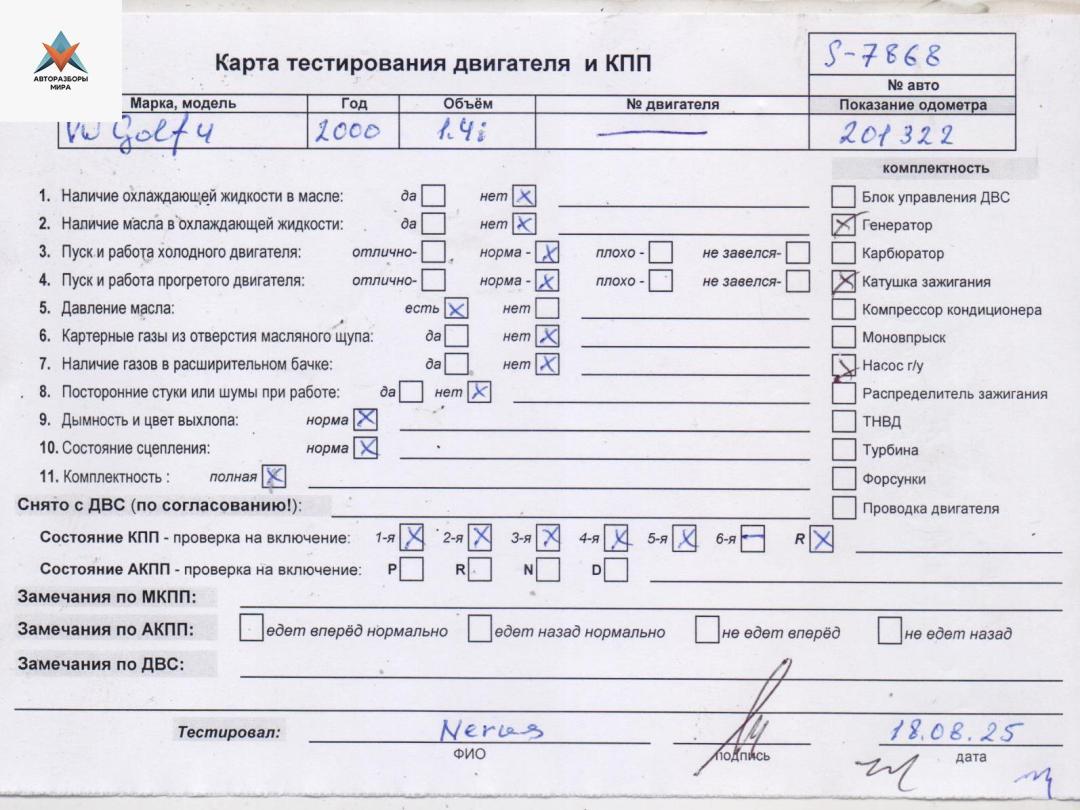 АВТОРАЗБОРЫ
МИРА
Карта тестирования двигателя и КПП
S-7868
№ авто
Марка, модель Год Объём № двигателя Показание одометра
VW Golf 4 2000 1.4i — 201322
комплектность
1. Наличие охлаждающей жидкости в масле: да нет x
Блок управления ДВС
2. Наличие масла в охлаждающей жидкости: да нет x
x Генератор
3. Пуск и работа холодного двигателя: отлично- норма - x плохо - не завелся-
Карбюратор
4. Пуск и работа прогретого двигателя: отлично- норма - x плохо - не завелся-
x Катушка зажигания
5. Давление масла: есть x нет
Компрессор кондиционера
6. Картерные газы из отверстия масляного щупа: да нет x
Моновпрыск
7. Наличие газов в расширительном бачке: да нет x
x Насос г/у
8. Посторонние стуки или шумы при работе: да нет x
Распределитель зажигания
9. Дымность и цвет выхлопа: норма x
ТНВД
10. Состояние сцепления: норма x
Турбина
11. Комплектность : полная x
Форсунки
Снято с ДВС (по согласованию!):
Проводка двигателя
Состояние КПП - проверка на включение: 1-я x 2-я x 3-я x 4-я x 5-я x 6-я — R x
Состояние АКПП - проверка на включение: P R N D
Замечания по МКПП:
Замечания по АКПП: едет вперёд нормально едет назад нормально не едет вперёд не едет назад
Замечания по ДВС:
Тестировал: 18.08.25
ФИО подпись дата